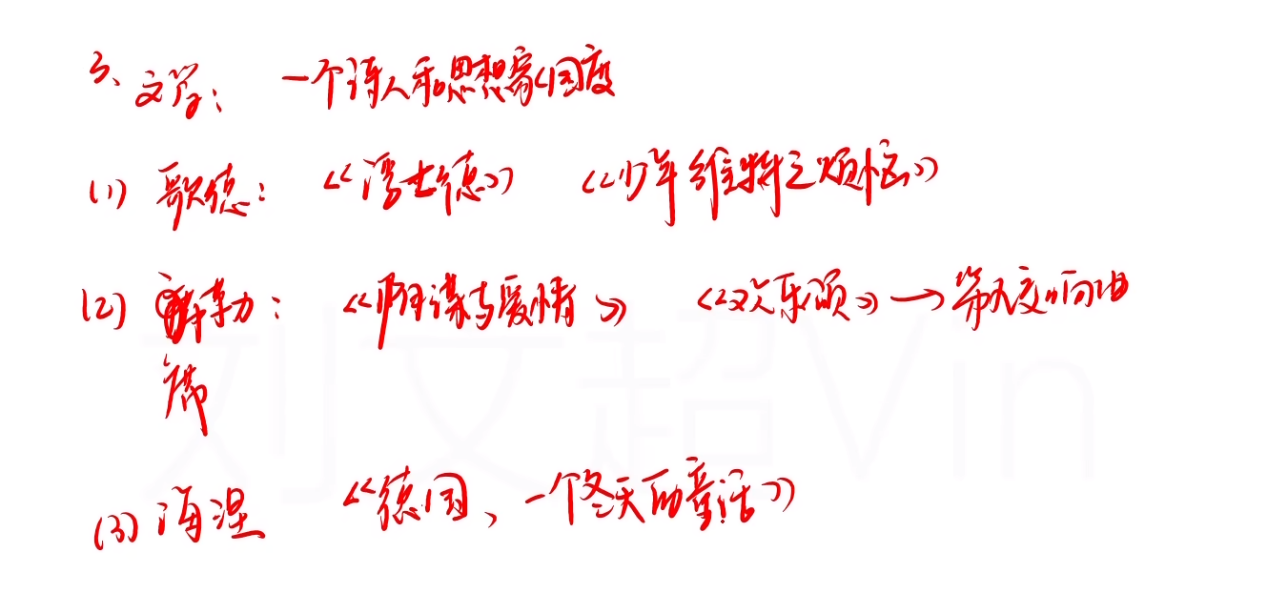 三、文学：一个诗人和思想家的国度
(1) 歌德：《浮士德》 《少年维特之烦恼》
(2) 席勒：《阴谋与爱情》 《欢乐颂》→第九交响曲
席
(3) 海涅 《德国、一个冬天的童话》
刘文超Vin